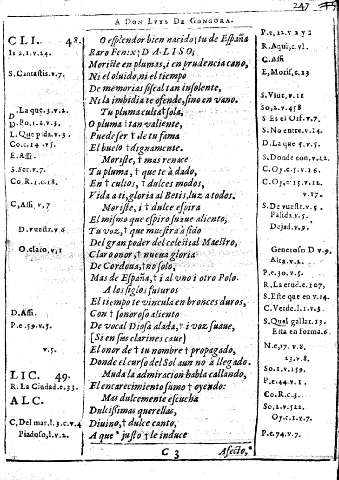 A DON LVYS DE GONGORA.
247
CLI. 48.
O esplendor bien nacido; tu de España
Raro Fenix; DALISO;
Moriste en plumas, i en prudencia cano,
Ni el oluido, ni el tiempo
De memorias fiscal tan insolente,
Ni la imbidia te ofende, sino en vano.
Tu pluma culta† sola,
O pluma† tan valiente,
Puede ser† de tu fama
El buelo† dignamente.
Moriste, † mas renace
Tu pluma, † que te à dado,
En† cultos, † dulces modos,
Vida a ti, gloria al Betis, luz a todos.
Moriste, i † dulce espira
El mismo que espiro suaue aliento,
Tu voz, † que muestra à sido
Del gran poder del celestial Maestro,
Claro onor, † nueua gloria
De Cordoua, † no solo,
Mas de España, † i al vno i otro Polo.
A los siglos futuros
El tiempo te vincula en bronces duros,
Con † sonoroso aliento
De vocal Diosa alada, † i voz suaue,
(Si en sus clarines caue)
El onor de † tu nombre † propagado,
Donde el curso del Sol aun no à llegado.
LIC. 49.
Muda la admiracion habla callando,
El encarecimiento sumo † oyendo:
ALC.
Mas dulcemente escucha
Dulcissimas querellas,
Diuino, † dulce canto,
A que † justo † le induce
C 3
Afecto,
S. Cantastis. v. 7.
D. La que. 3. v. 2.
D. Po. 1. 2. v. 3.
L. Que pida. v. 3.
Co. c. 14. v. 5.
E. Assi.
S. Ser. v. 7.
Co. R. 1. c. 18.
C, Assi, v. 7
D. vueſtr. v. 6
O. claro, v, 1
D. Assi.
P. e. 59. v. 5.
v. 5.
R. La Ciudad. e. 33.
C, Del mar. l. 3. c. v. 4
Piadoso, l. v. 2.
P. e. 12. v. 2 y 2
R. Aqui, e. vl.
C. Assi
E, Morif, e. 23
S. Viue, v. 11
So, 2. v. 458
S Es el Orf. v. 7.
S. No entre. v. 14.
D. La que 5. v. 5.
S. Donde con, v. 12.
C. Of. c. 5. v. 16.
C. Of. c. 15. v. 12.
v. 17.
S. De vuest. v. 5.
Palida. v. 5.
Dejad. v. 9.
Generoso D v. 9.
Alta. v. 2.
P. e. 30. v. 5.
R. La crue. e. 107,
S. Este que en v. 14.
C. Verde. l. 1. v. 5.
S. Qual gallar. 13.
Esta en forma. 6.
N. e, 17. v. 8.
23. v. 8.
So. 1. v. 159.
P. e 44. v 1.
Co. R. c. 3.
So, 2. v. 522.
Of. c. 1. v. 7.
P. e. 74. v. 7.